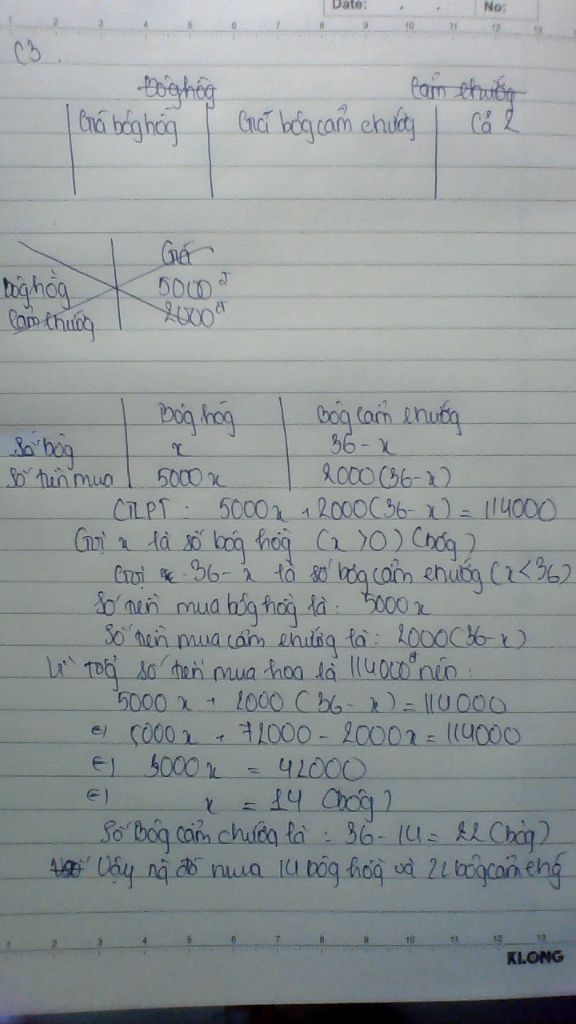 Date: . . No:
C3.
Bôghôg Cẩm chướg
Giá bôghôg Giá bôgcẩm chướg Cả 2
Giá
Bôghồg 5000đ
Cẩmchướg 2000đ
Bôg hôg Bôg cẩm chướg
Số bôg x 36-x
Số tiền mua 5000x 2000(36-x)
5000x + 2000(36-x) = 114000
Gọi x là số bôg hồg (x>0) (bôg)
Gọi 36-x là số bôg cẩm chướg (x<36)
Số tiền mua bôg hồg là: 5000x
Số tiền mua cẩm chướg là: 2000(36-x)
Vì tổg số tiền mua hoa là 114000đ nên:
5000x + 2000(36-x) = 114000
5000x + 72000 - 2000x = 114000
3000x = 42000
x = 14 (bôg)
Số Bôg cẩm chướg là: 36-14 = 22 (bôg)
Vậy mua 14 bôg hồg và 22 bôgcẩm
KLONG